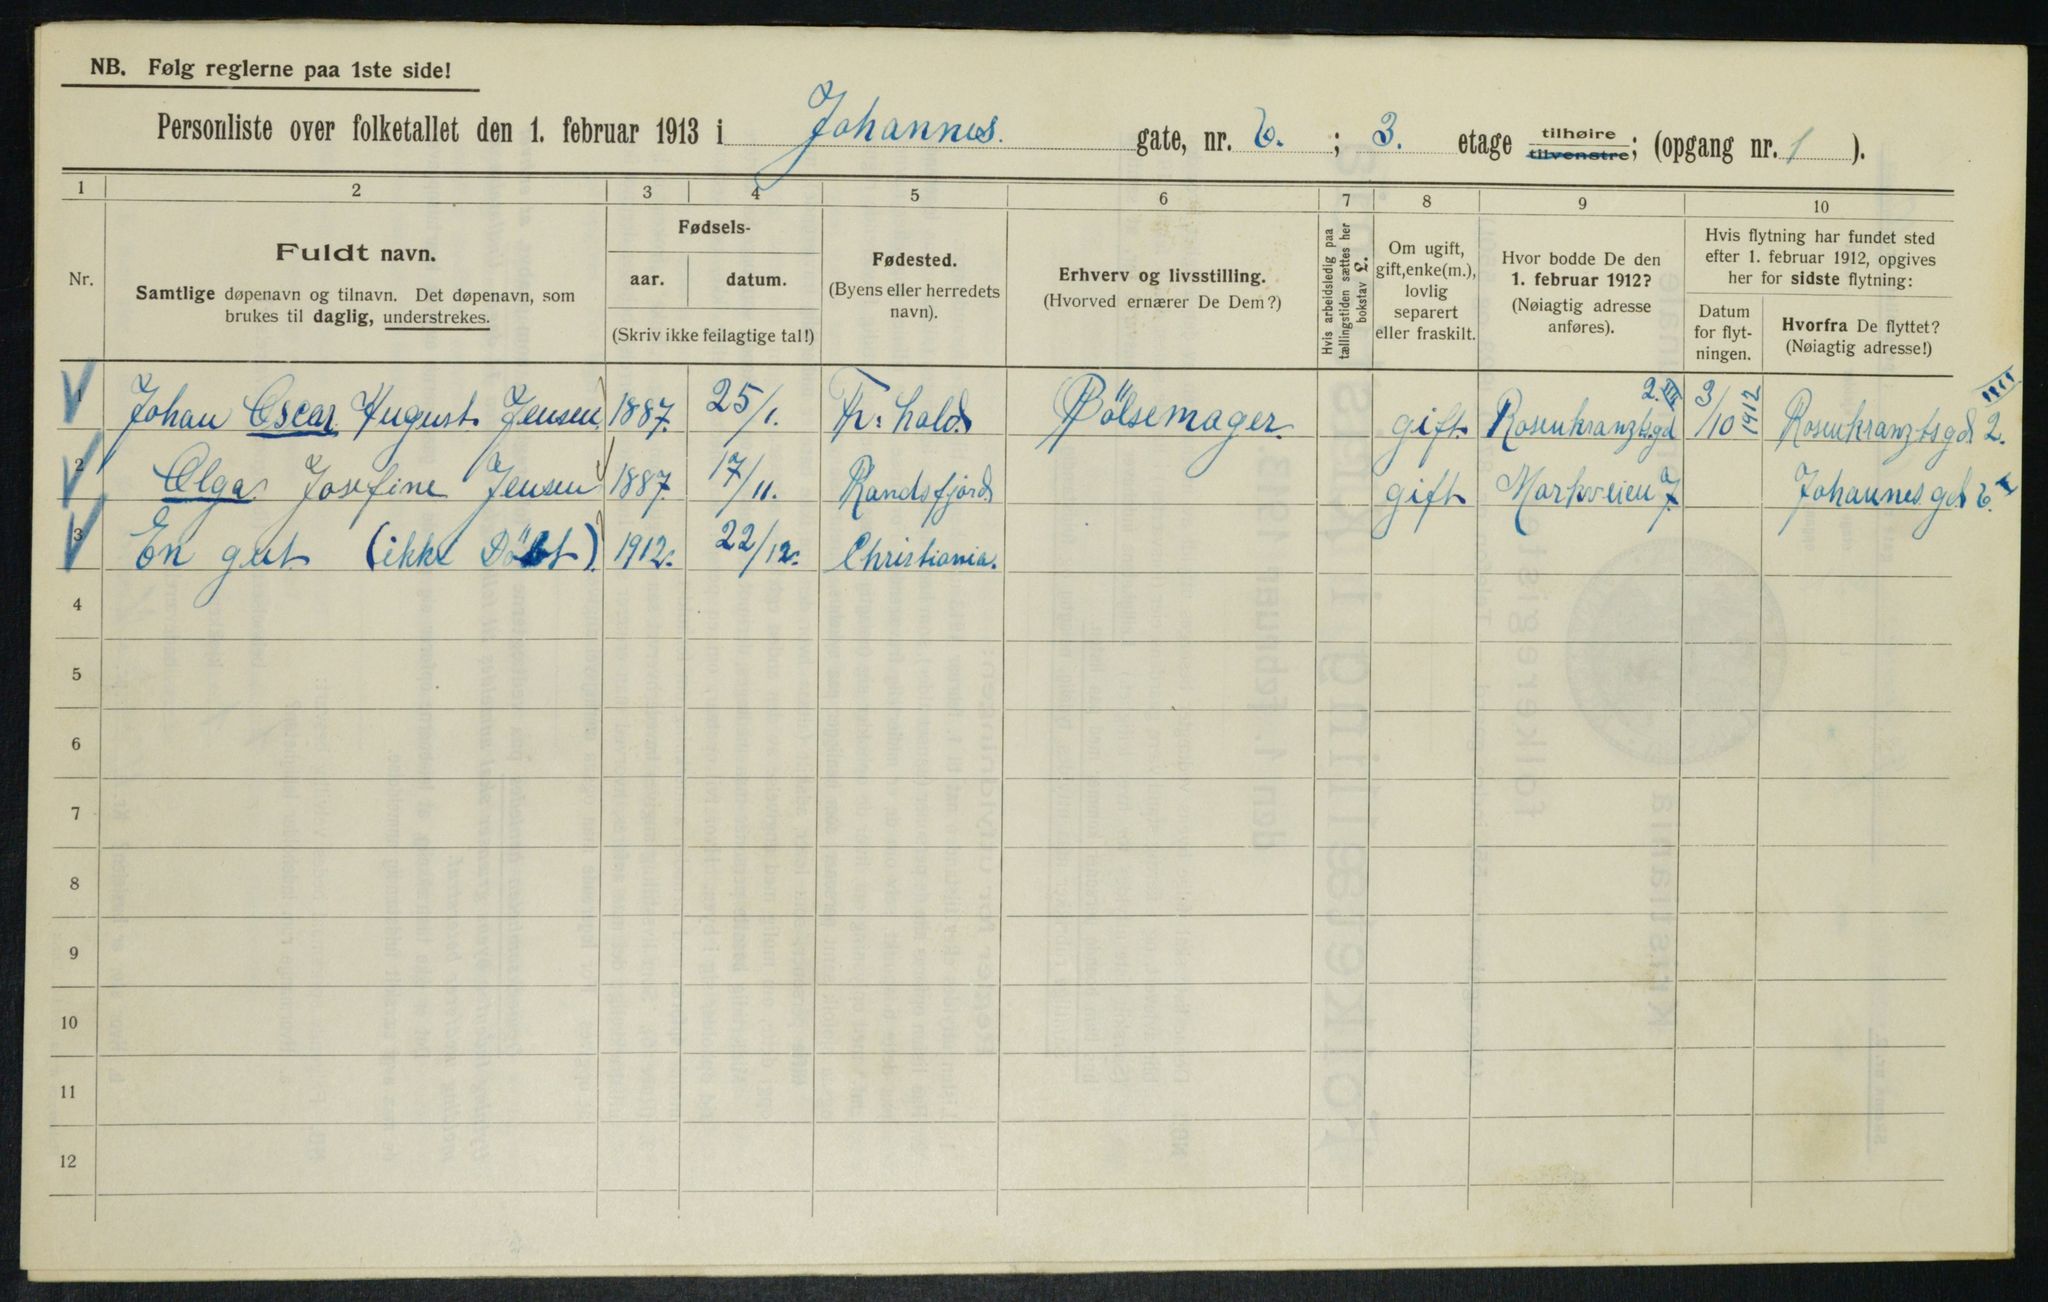 NB. Følg reglerne paa 1ste side!
Personliste over folketallet den 1. februar 1913 i Johannes. gate, nr. 6. ; 3. etage tilhøire tilvenstre; (opgang nr. 1 ).
1 2 3 4 5 6 7 8 9 10
Nr.
Fuldt navn.
Samtlige døpenavn og tilnavn. Det døpenavn, som
brukes til daglig, understrekes.
Fødsels-
aar. datum.
(Skriv ikke feilagtige tal!)
Fødested.
(Byens eller herredets
navn).
Erhverv og livsstilling.
(Hvorved ernærer De Dem?)
Hvis arbeidsledig paa
tællingstiden sættes her
bokstav L.
Om ugift,
gift, enke(m.),
lovlig
separert
eller fraskilt.
Hvor bodde De den
1. februar 1912?
(Nøiagtig adresse
anføres).
Hvis flytning har fundet sted
efter 1. februar 1912, opgives
her for sidste flytning:
Datum
for flyt-
ningen.
Hvorfra De flyttet?
(Nøiagtig adresse!)
1 Johan Oscar August Jensen 1887. 25/1. Fr: hald. Pölsemager. gift. Rosenkranztsgd 2. III 3/10 1912 Rosenkranztsgd 2.
2 Olga Josefine Jensen 1887. 17/11. Randsfjord gift Markveien 7. Johannes gd 6. I
3 En gut (ikke Döbt). 1912. 22/12. Christiania.
4
5
6
7
8
9
10
11
12